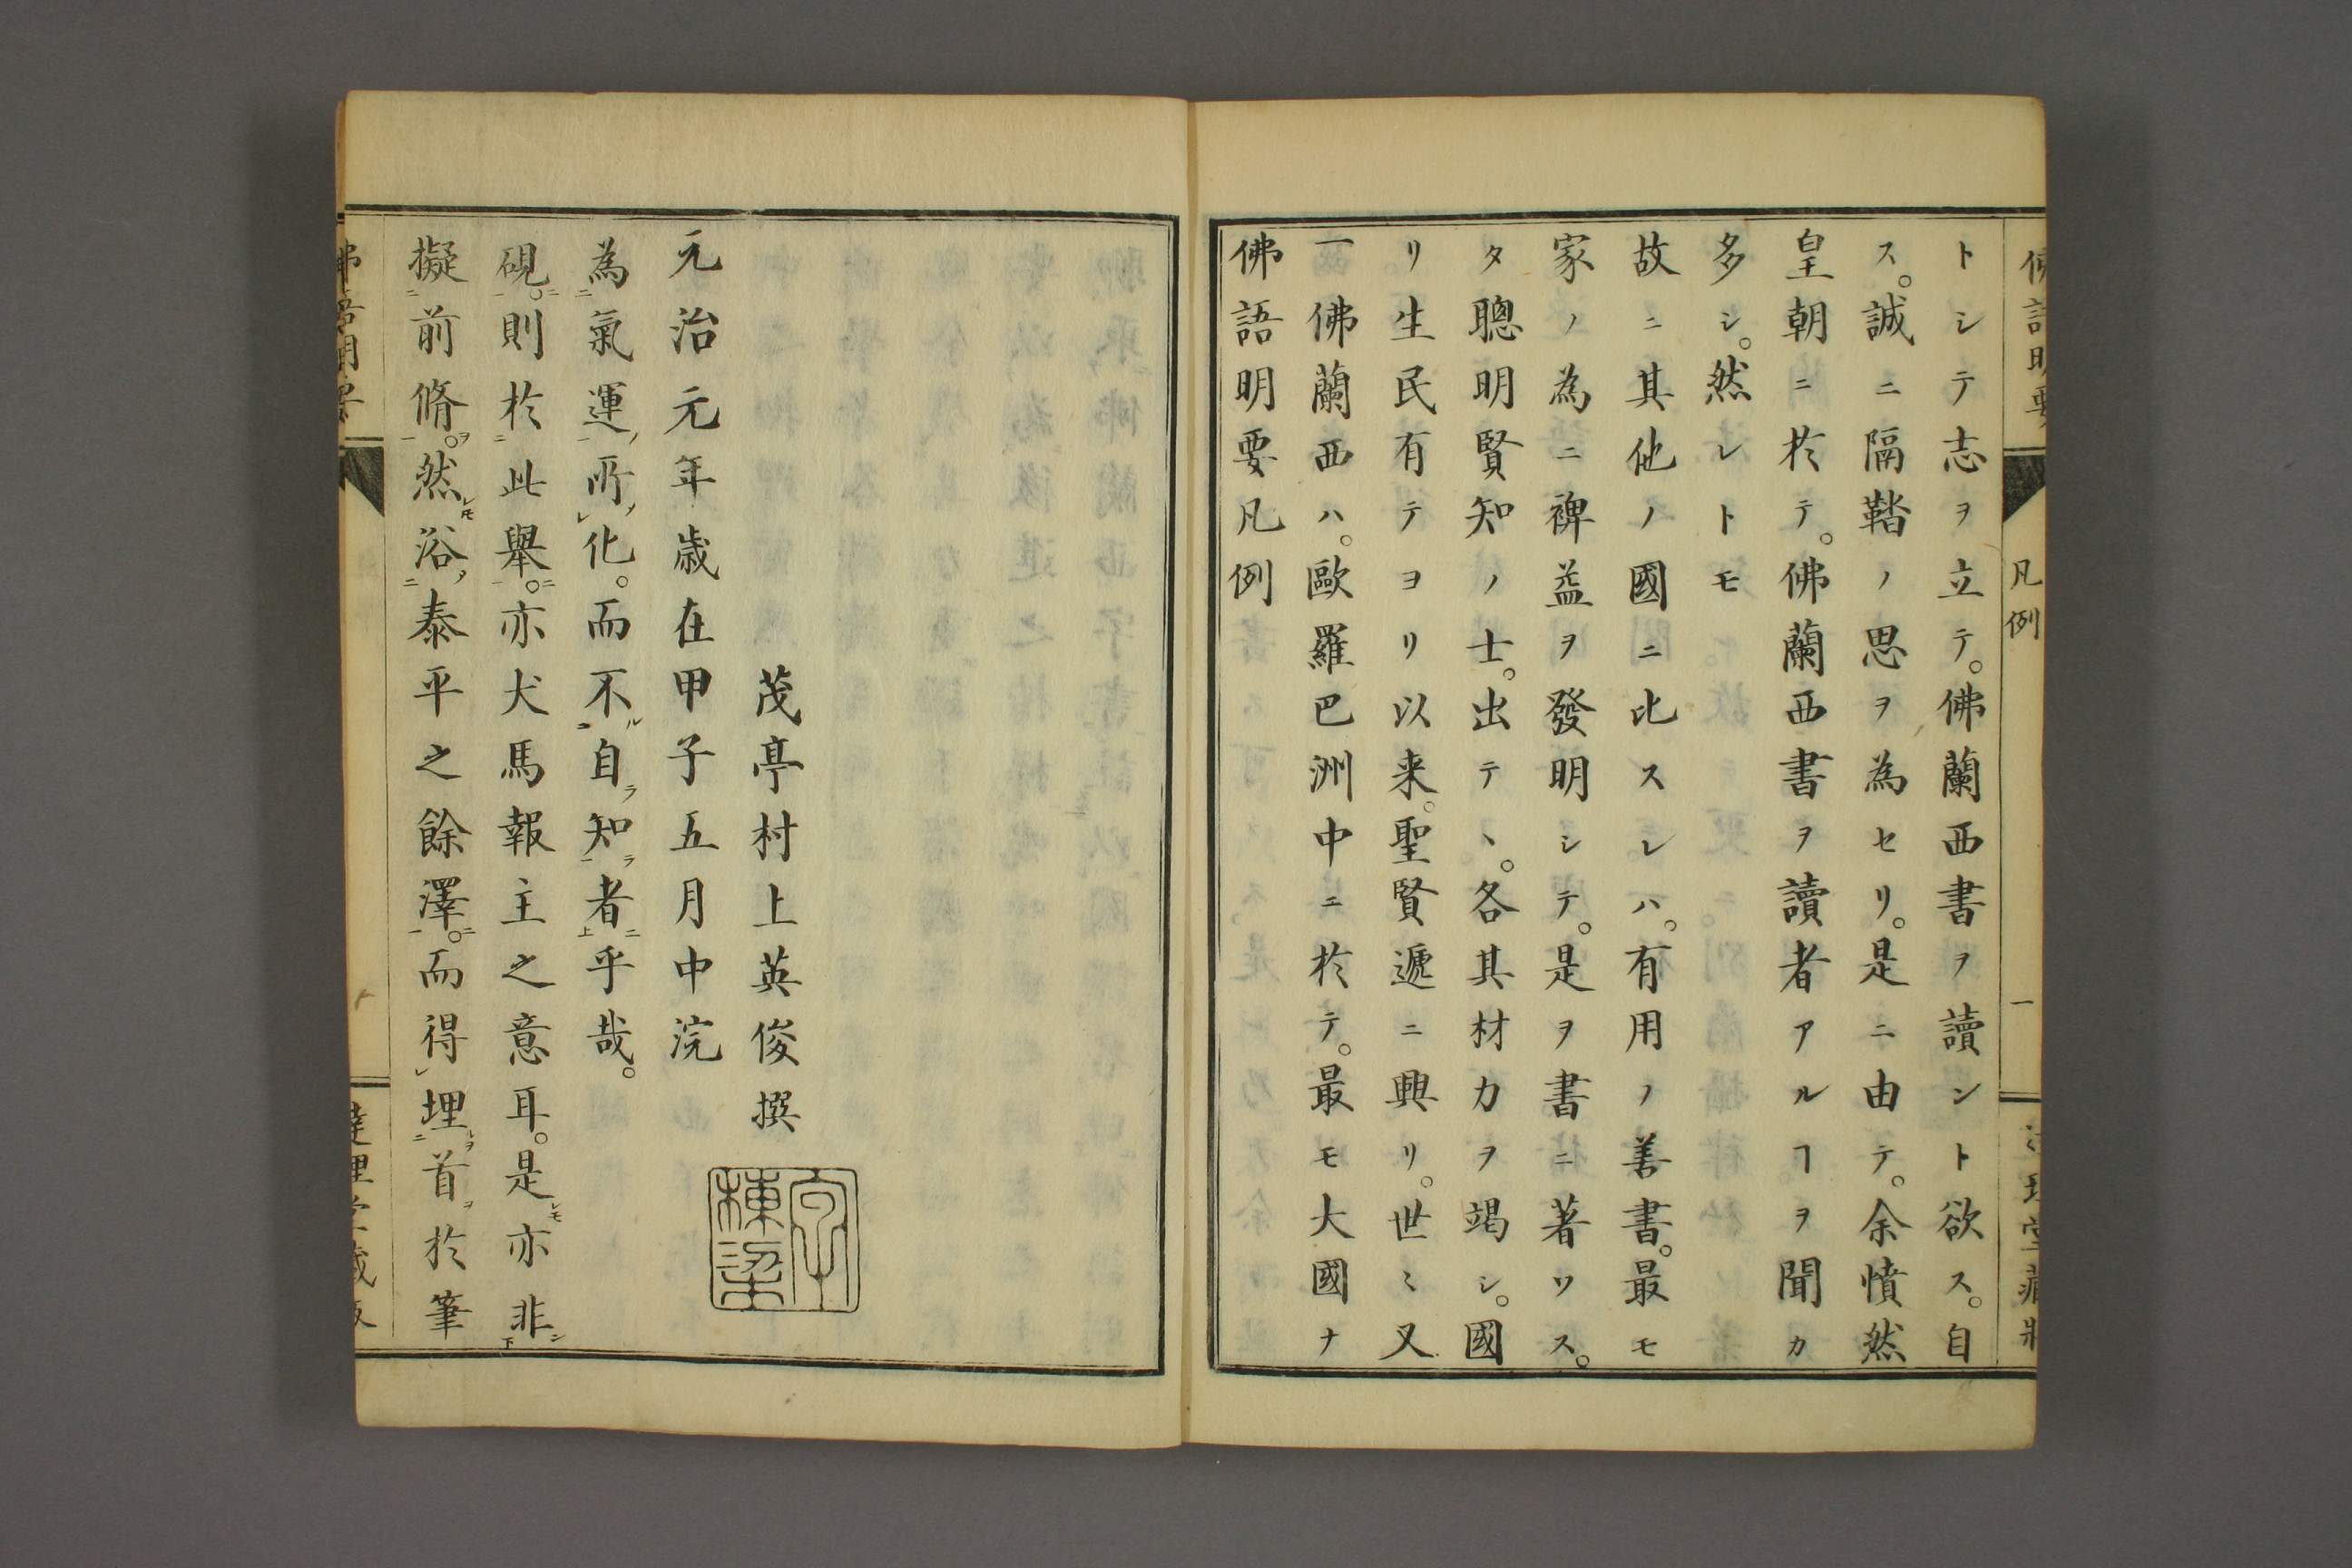 佛語明要
達理堂藏版
擬前脩。然浴泰平之餘澤。而得埋首於筆
硯。則於此舉。亦犬馬報主之意耳。是亦非
為氣運所化。而不自知者乎哉。
元治元年歳在甲子五月中浣
茂亭村上英俊撰
字棟梁
佛語明要凡例
一佛蘭西ハ。歐羅巴洲中ニ於テ。最モ大國ナ
リ生民有テヨリ以来。聖賢遞ニ興リ。世ミ又
タ聰明賢知ノ士。出テヽ。各其材力ヲ竭シ。國
家ノ為ニ裨益ヲ發明シテ。是ヲ書ニ著ワス。
故ニ其他ノ國ニ比スレハ。有用ノ善書。最モ
多シ。然レトモ
皇朝ニ於テ。佛蘭西書ヲ讀者アルヿヲ聞カ
ス。誠ニ隔鞜ノ思ヲ為セリ。是ニ由テ。余憤然
トシテ志ヲ立テ。佛蘭西書ヲ讀ント欲ス。自
佛語明要
凡例
一